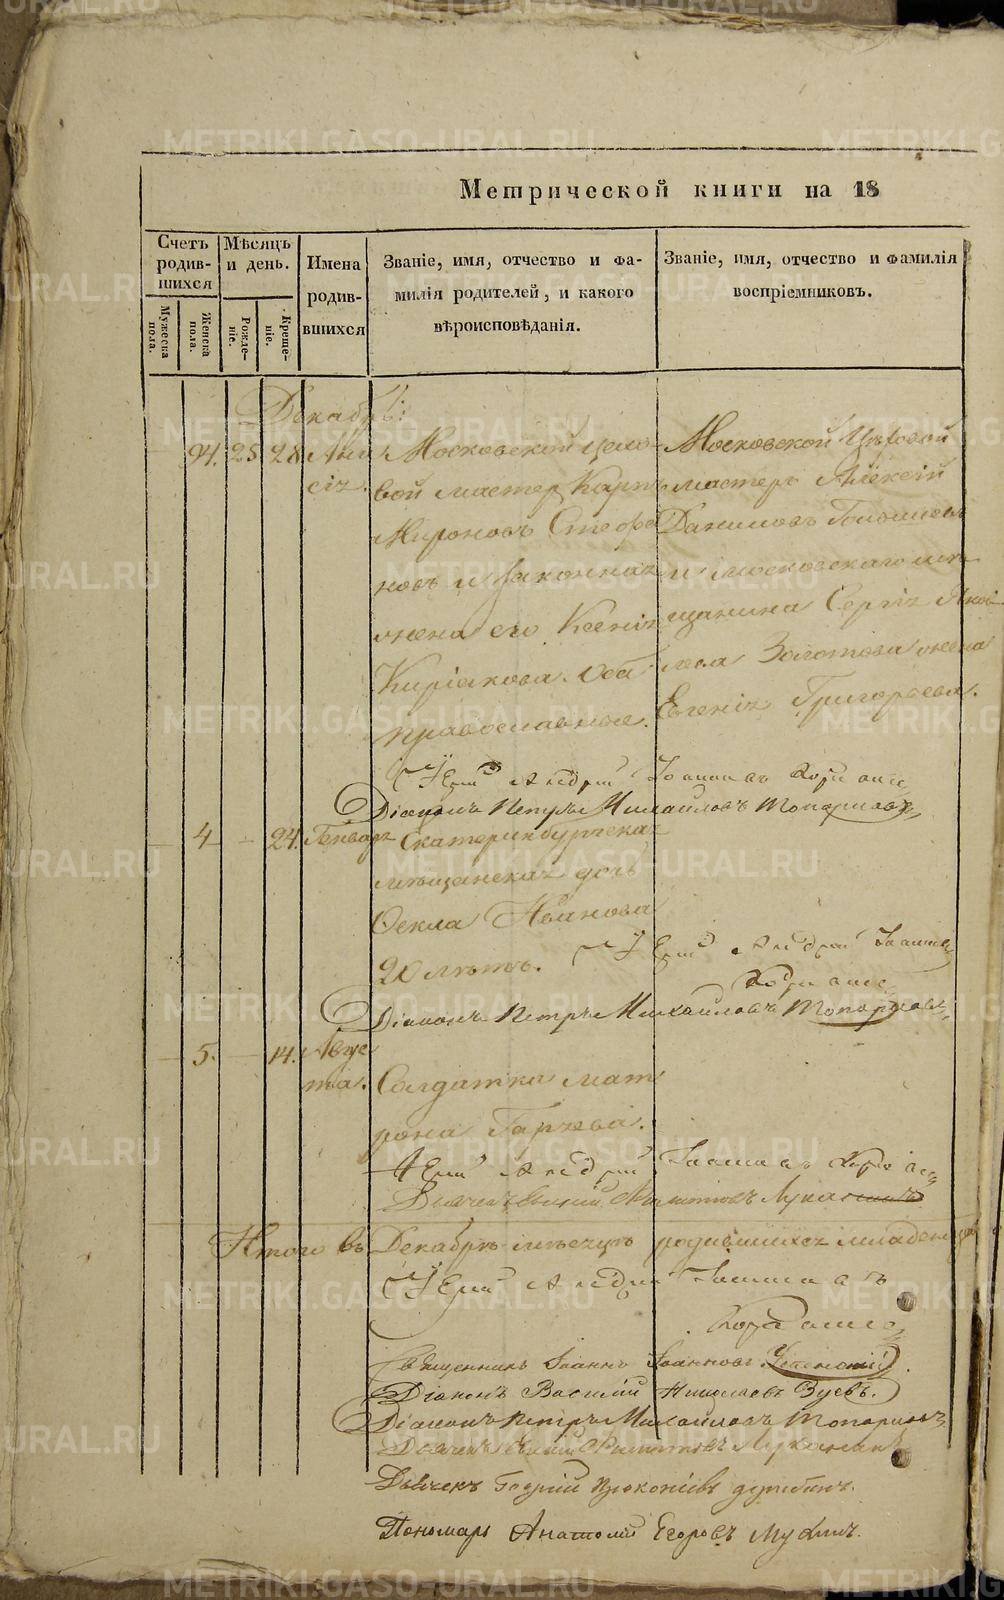 Метрической книги на 18
Счетъ родив-шихся
Мѣсяцъ и день.
Имена родив-вшихся
Званіе, имя, отчество и фа-
милія родителей, и какого
вѣроисповѣданія.
Званіе, имя, отчество и фамилія
воспріемниковъ.
Мужеска пола.
Женска пола.
Рожде-ніе.
Креще-ніе.
Декабрь:
94. 25 28 Ани-
сія.
Московскій цехо-
вой мастер Карпъ
Мироновъ Стефа
новъ и законная
жена его Ксенія
Киріакова. Оба
православные.
Московской Цѣховой
мастеръ Алексій
Даниловъ
и московскаго мѣ-
щанина Сергія Яков
лева Золотова жена
Евгенія Григорьева.
Іерей Андрей Іоанновъ
Діаконъ Петръ Михайловъ Топорковъ
4 - 24. Генваря
Екатеринбургская
мѣщанская дочь
Ѳекла Иванова
20 лѣтъ.
Іерей Андрей Іоаннов
Діаконъ Петръ Михайловъ Топорковъ
5. - 14. Авгус
та.
Солдатка Мат
рона
Іерей Андрей Іоаннавъ
Итого въ Декабрѣ мѣсяцѣ родившихся младенцов
Іерей Андрей Іоаннавъ
Священникъ Іоаннъ Іоанновъ
Діаконъ Василій Николаевъ Зуевъ.
Діаконъ Петръ Михайловъ Топорковъ
Дьячекъ
Дьячекъ Прокопіевъ
Пономарь Анатолій Егоровъ Мухинъ.
METRIKI.GASO-URAL.RU